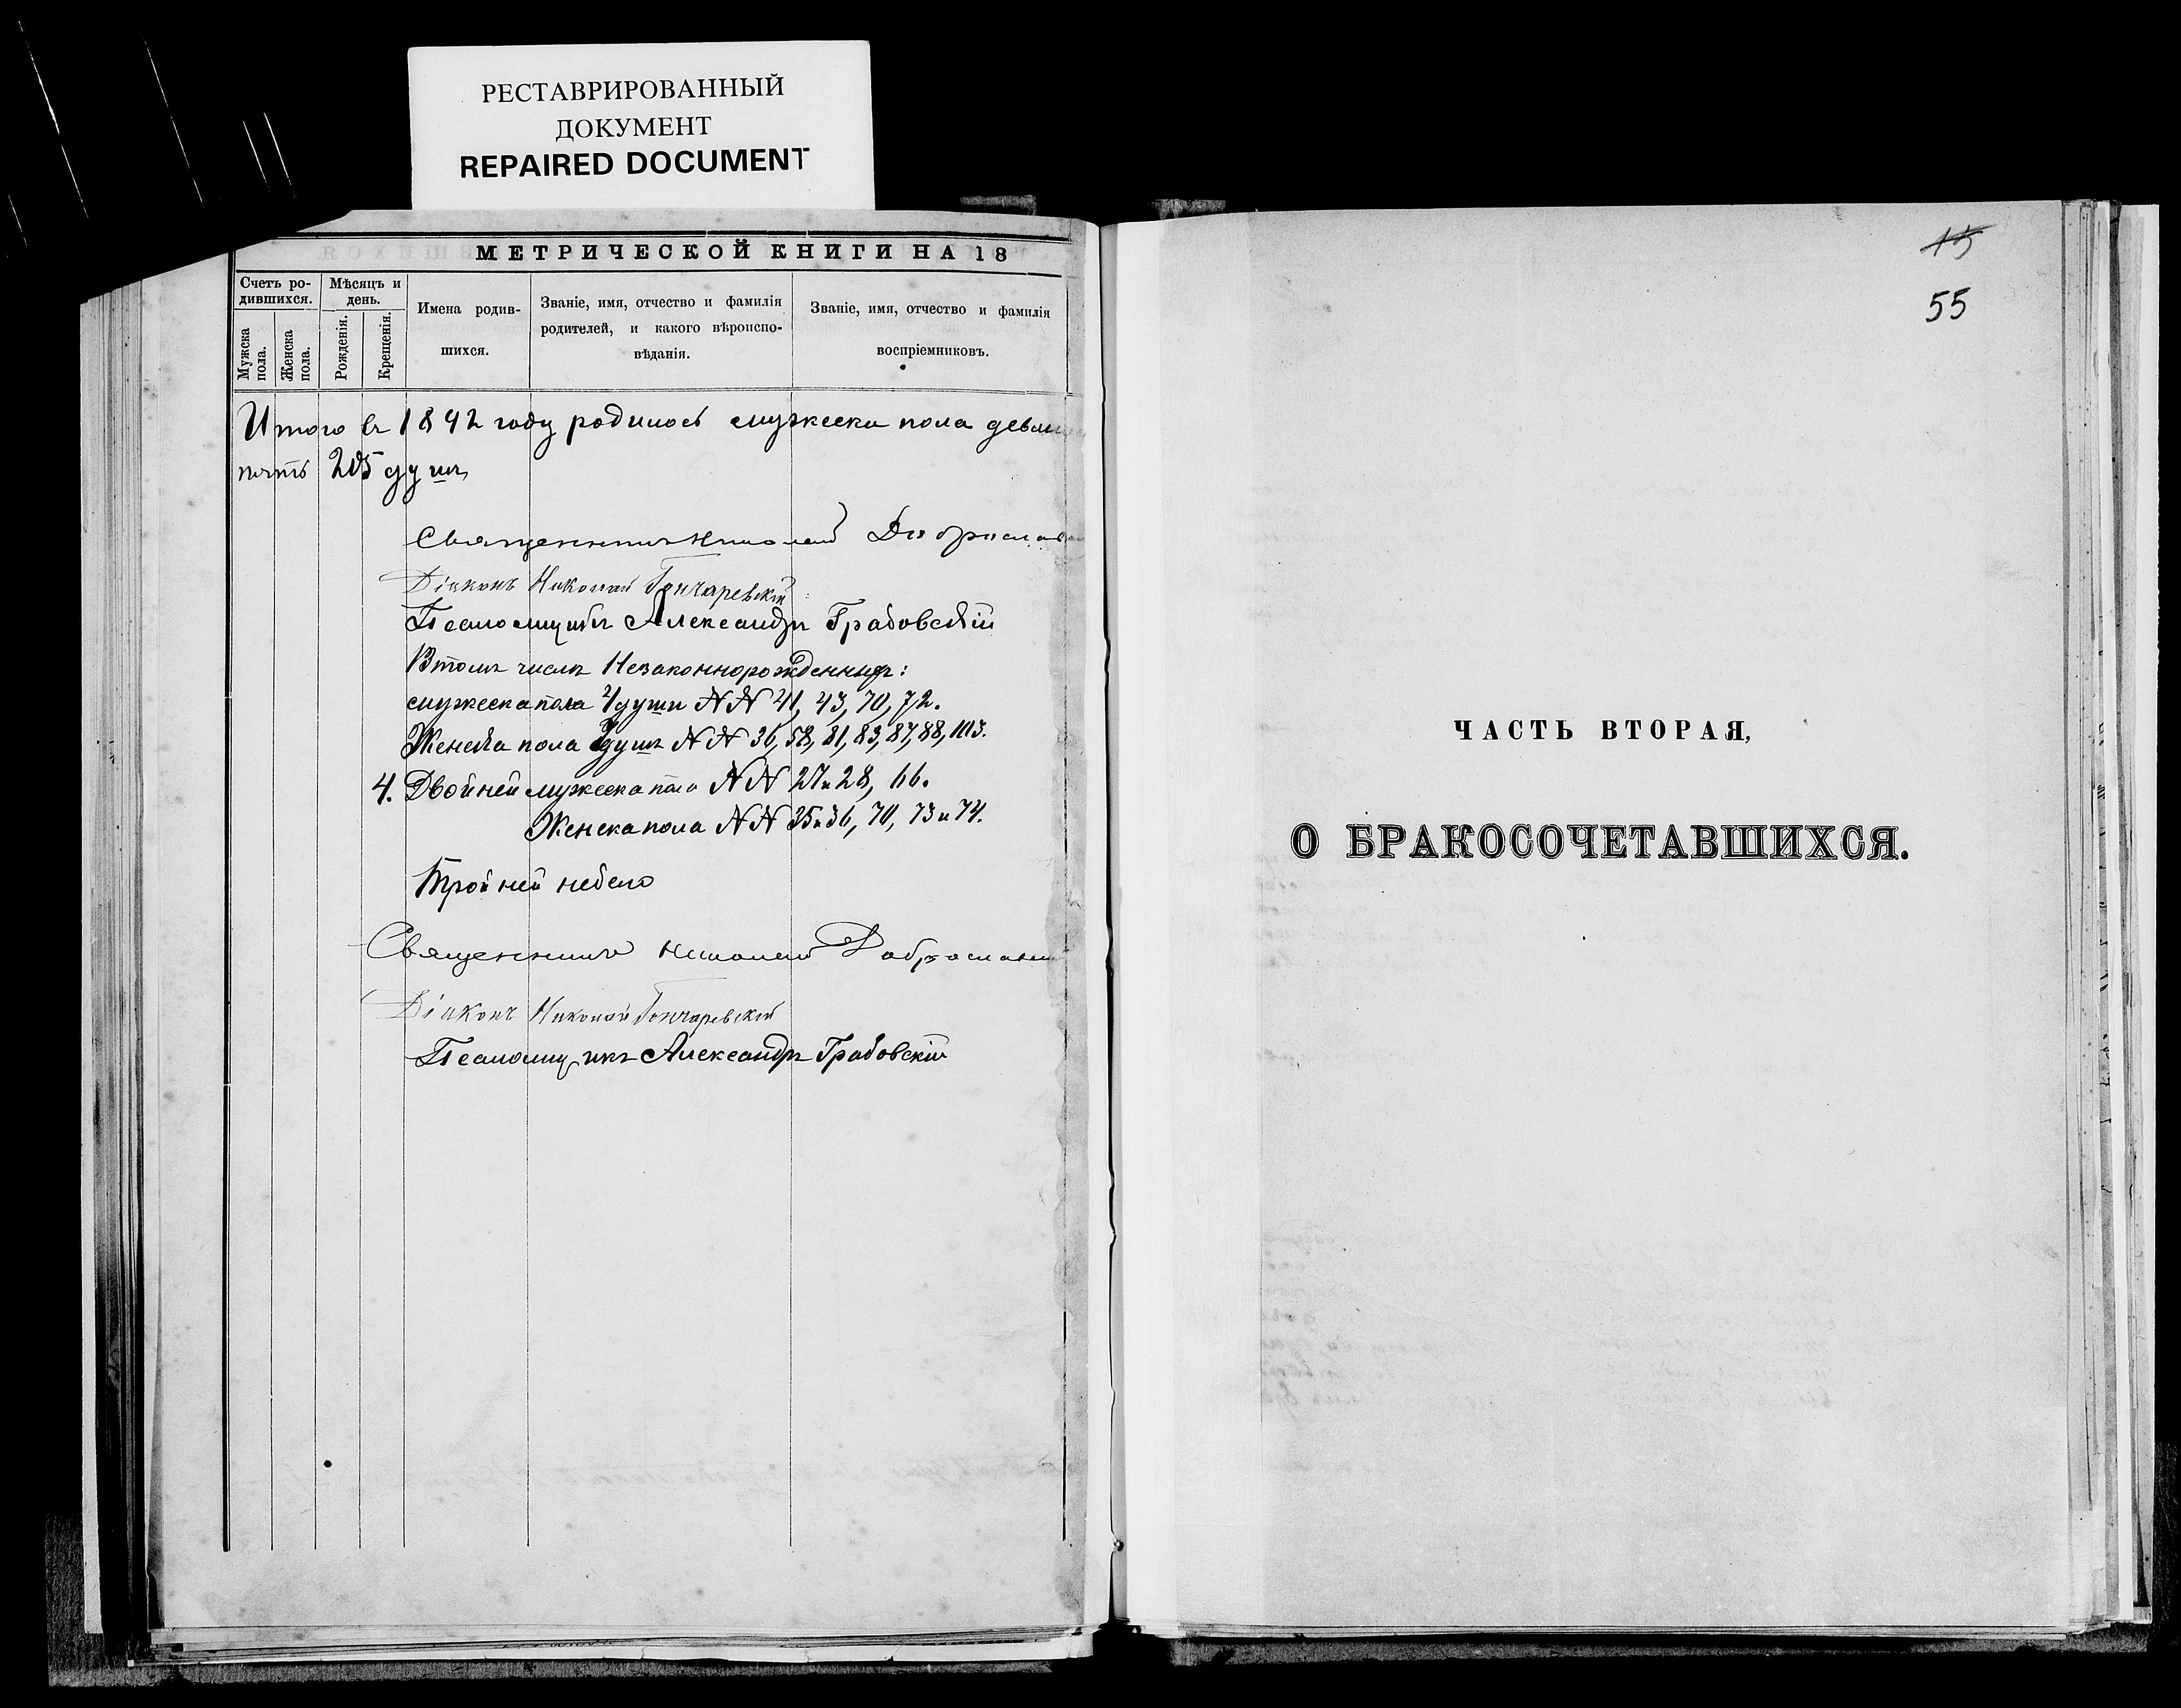 РЕСТАВРИРОВАННЫЙ
ДОКУМЕНТ
REPAIRED DOCUMENT
МЕТРИЧЕСКОЙ КНИГИ НА 18
Счетъ ро-
дившихся.
Мужска
пола.
Женска
пола.
Мѣсяцъ и
день.
Рожденія.
Крещенія.
Имена родив-
шихся.
Званіе, имя, отчество и фамилія
родителей, и какого вѣроиспо-
вѣданія.
Званіе, имя, отчество и фамилія
воспріемниковъ.
Итого въ 1892 году родилось мужеска пола
пять 205 душъ
Священникъ Николай
Діаконъ Николай Гончаревскій
Псаломщикъ Александръ Грабовскій
Втомъ числѣ Незаконнорожденныхъ:
мужеска пола 4 души NN 41, 43, 70, 72.
Женска пола душъ NN 36, 58, 81, 83, 87, 88, 103.
4. Двойней мужеска пола NN 27 и 28, 66.
Женска пола NN 35 и 36, 70, 73 и 74.
Тройней небыло
Священникъ Николай
Діаконъ Николай Гончаревскій
Псаломщикъ Александръ Грабовскій
55
ЧАСТЬ ВТОРАЯ,
О БРАКОСОЧЕТАВШИХСЯ.